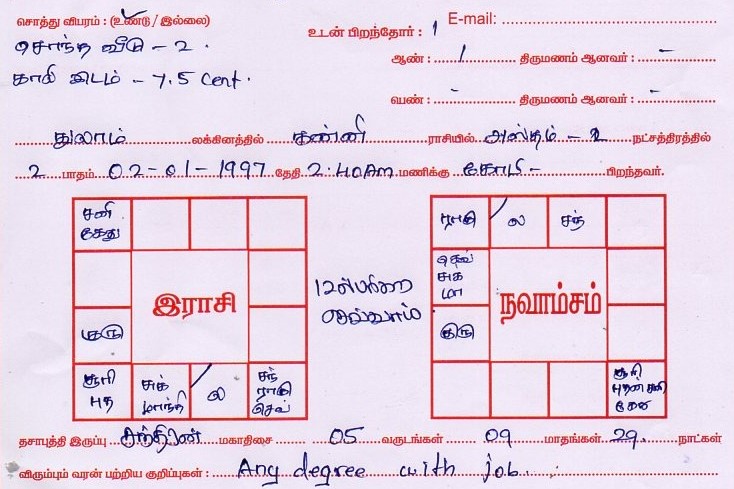 சொத்து விபரம் : (உண்டு / இல்லை)
E-mail:
சொந்த வீடு - 2.
உடன் பிறந்தோர் : 1
காலி இடம் - 7.5 Cent.
ஆண் : 1 திருமணம் ஆனவர் : -
பெண் : - திருமணம் ஆனவர் : -
துலாம் லக்கினத்தில் கன்னி ராசியில் அஸ்தம் - 2 நட்சத்திரத்தில்
2 பாதம் 02-01-1997 தேதி 2.40AM மணிக்கு கோபி - பிறந்தவர்.
சனி
கேது
ராகு ல சந்
செவ்
சுக்
மா
இராசி
நவாம்சம்
குரு
குரு
சூரி
புத
சுக்
மாந்தி
ல
சந்
ராகு
செவ்
சூரி
புதன் சனி
கேது
தசாபுத்தி இருப்பு சந்திரன் மகாதிசை 05 வருடங்கள் 09 மாதங்கள் 29 நாட்கள்
விரும்பும் வரன் பற்றிய குறிப்புகள் : Any degree with job.